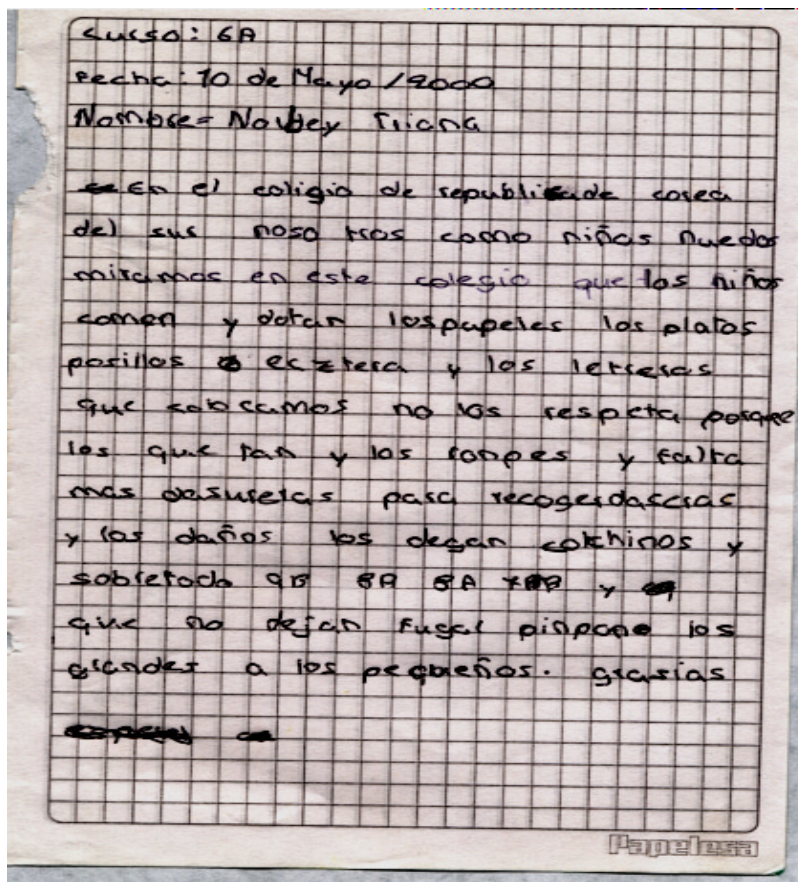 Curso: 6A
Fecha: 10 de Mayo / 2000
Nombre= Norbey Triana
En el coligio de republica de corea
del sur nosotros como niños nuevos
miramos en este colegio que los niños
comen y votan los papeles los platos
posillos ecztera y los letreros
que colocamos no los respeta porque
los quitan y los ronpes y falta
mas vasureras para recogerdasceras
y los daños los degan cokhinos y
sobretodo 9B 8A 8A y
que no dejan fugar pinpono los
grandes a los pequeños. grasias
Papelesa